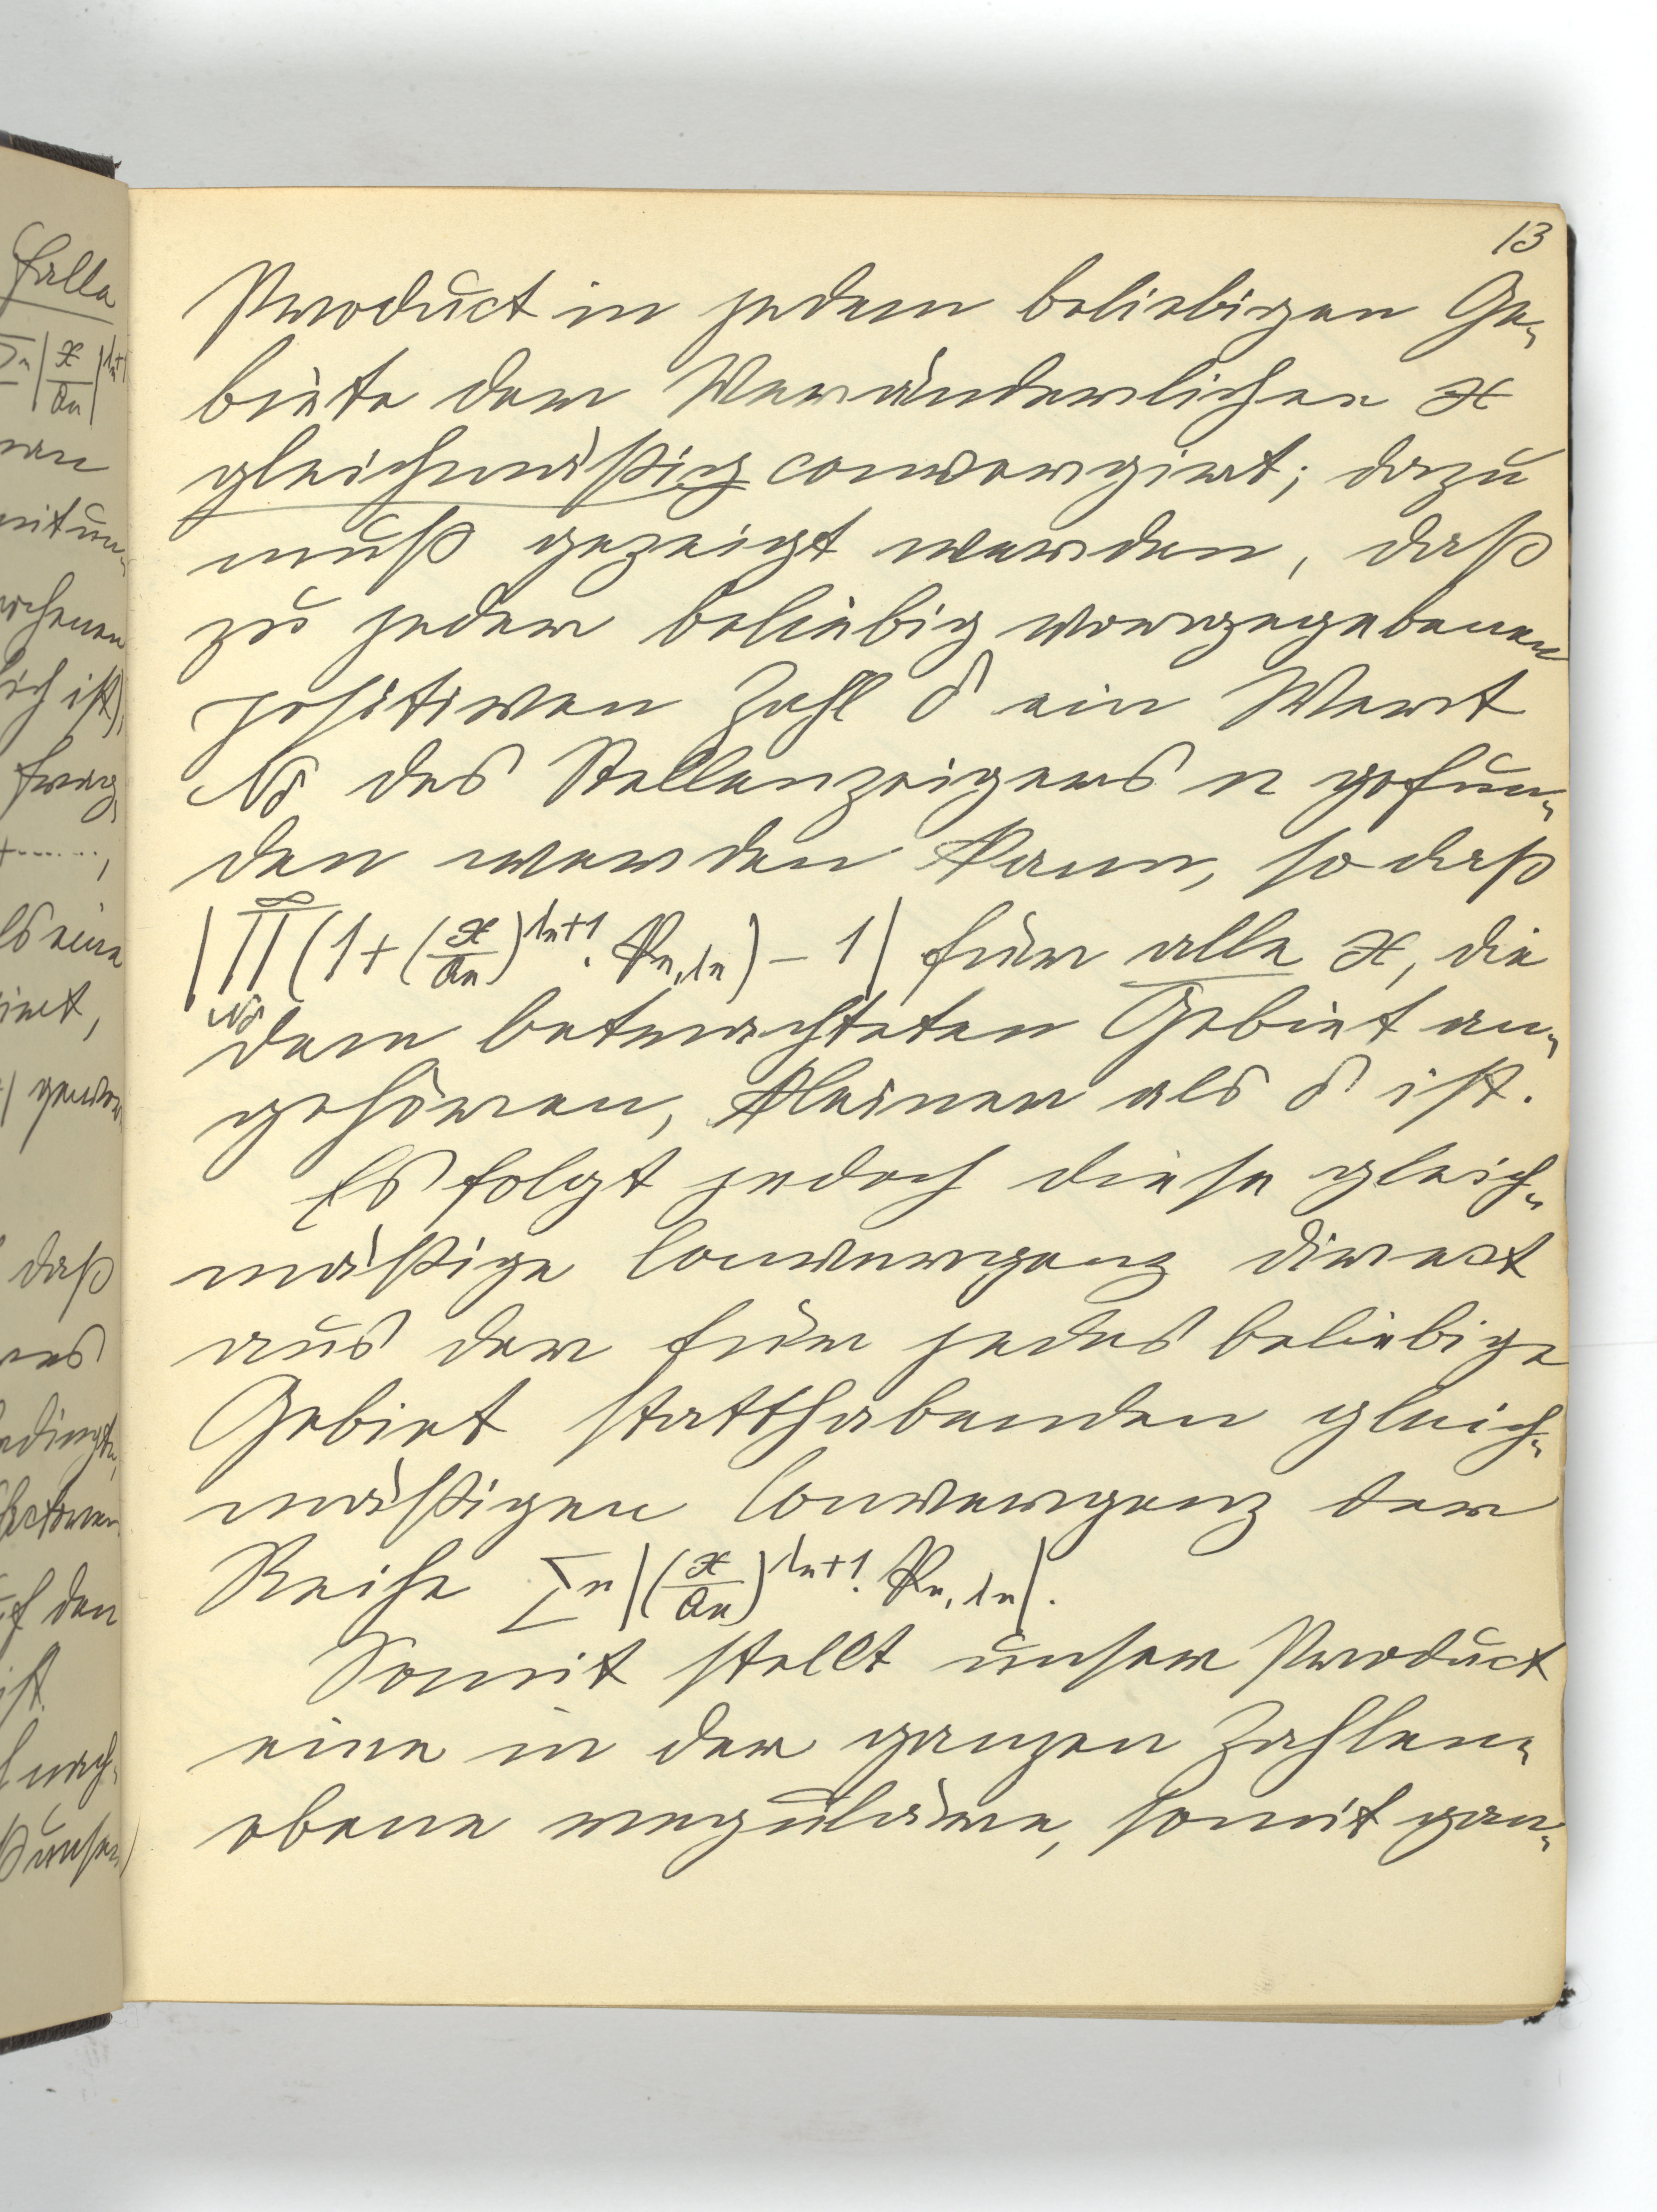 13
Product in jedem beliebigen Ge-
biete der Veränderlichen x
gleichmäßig convergirt; dazu
muß gezeigt werden, daß
zu jeder beliebig vorgegebenen
positiven Zahl δ ein Wert
Nδ des Stellenzeigers n gefun-
den werden kann, so daß
|∏_{Nδ}^{∞} (1 + (x/aₙ)^{λₙ+1} · Rₙ,λₙ) − 1| für alle x, die
dem betrachteten Gebiet an-
gehören, kleiner als δ ist.
Es folgt jedoch diese gleich-
mäßige Convergenz direct
aus der für jedes beliebige
Gebiet statthabenden gleich-
mäßigen Convergenz der
Reihe Σn |(x/aₙ)^{λₙ+1} · Rₙ,λₙ|.
Somit stellt unser Product
eine in der ganzen Zahlen-
ebene reguläre, somit gan-